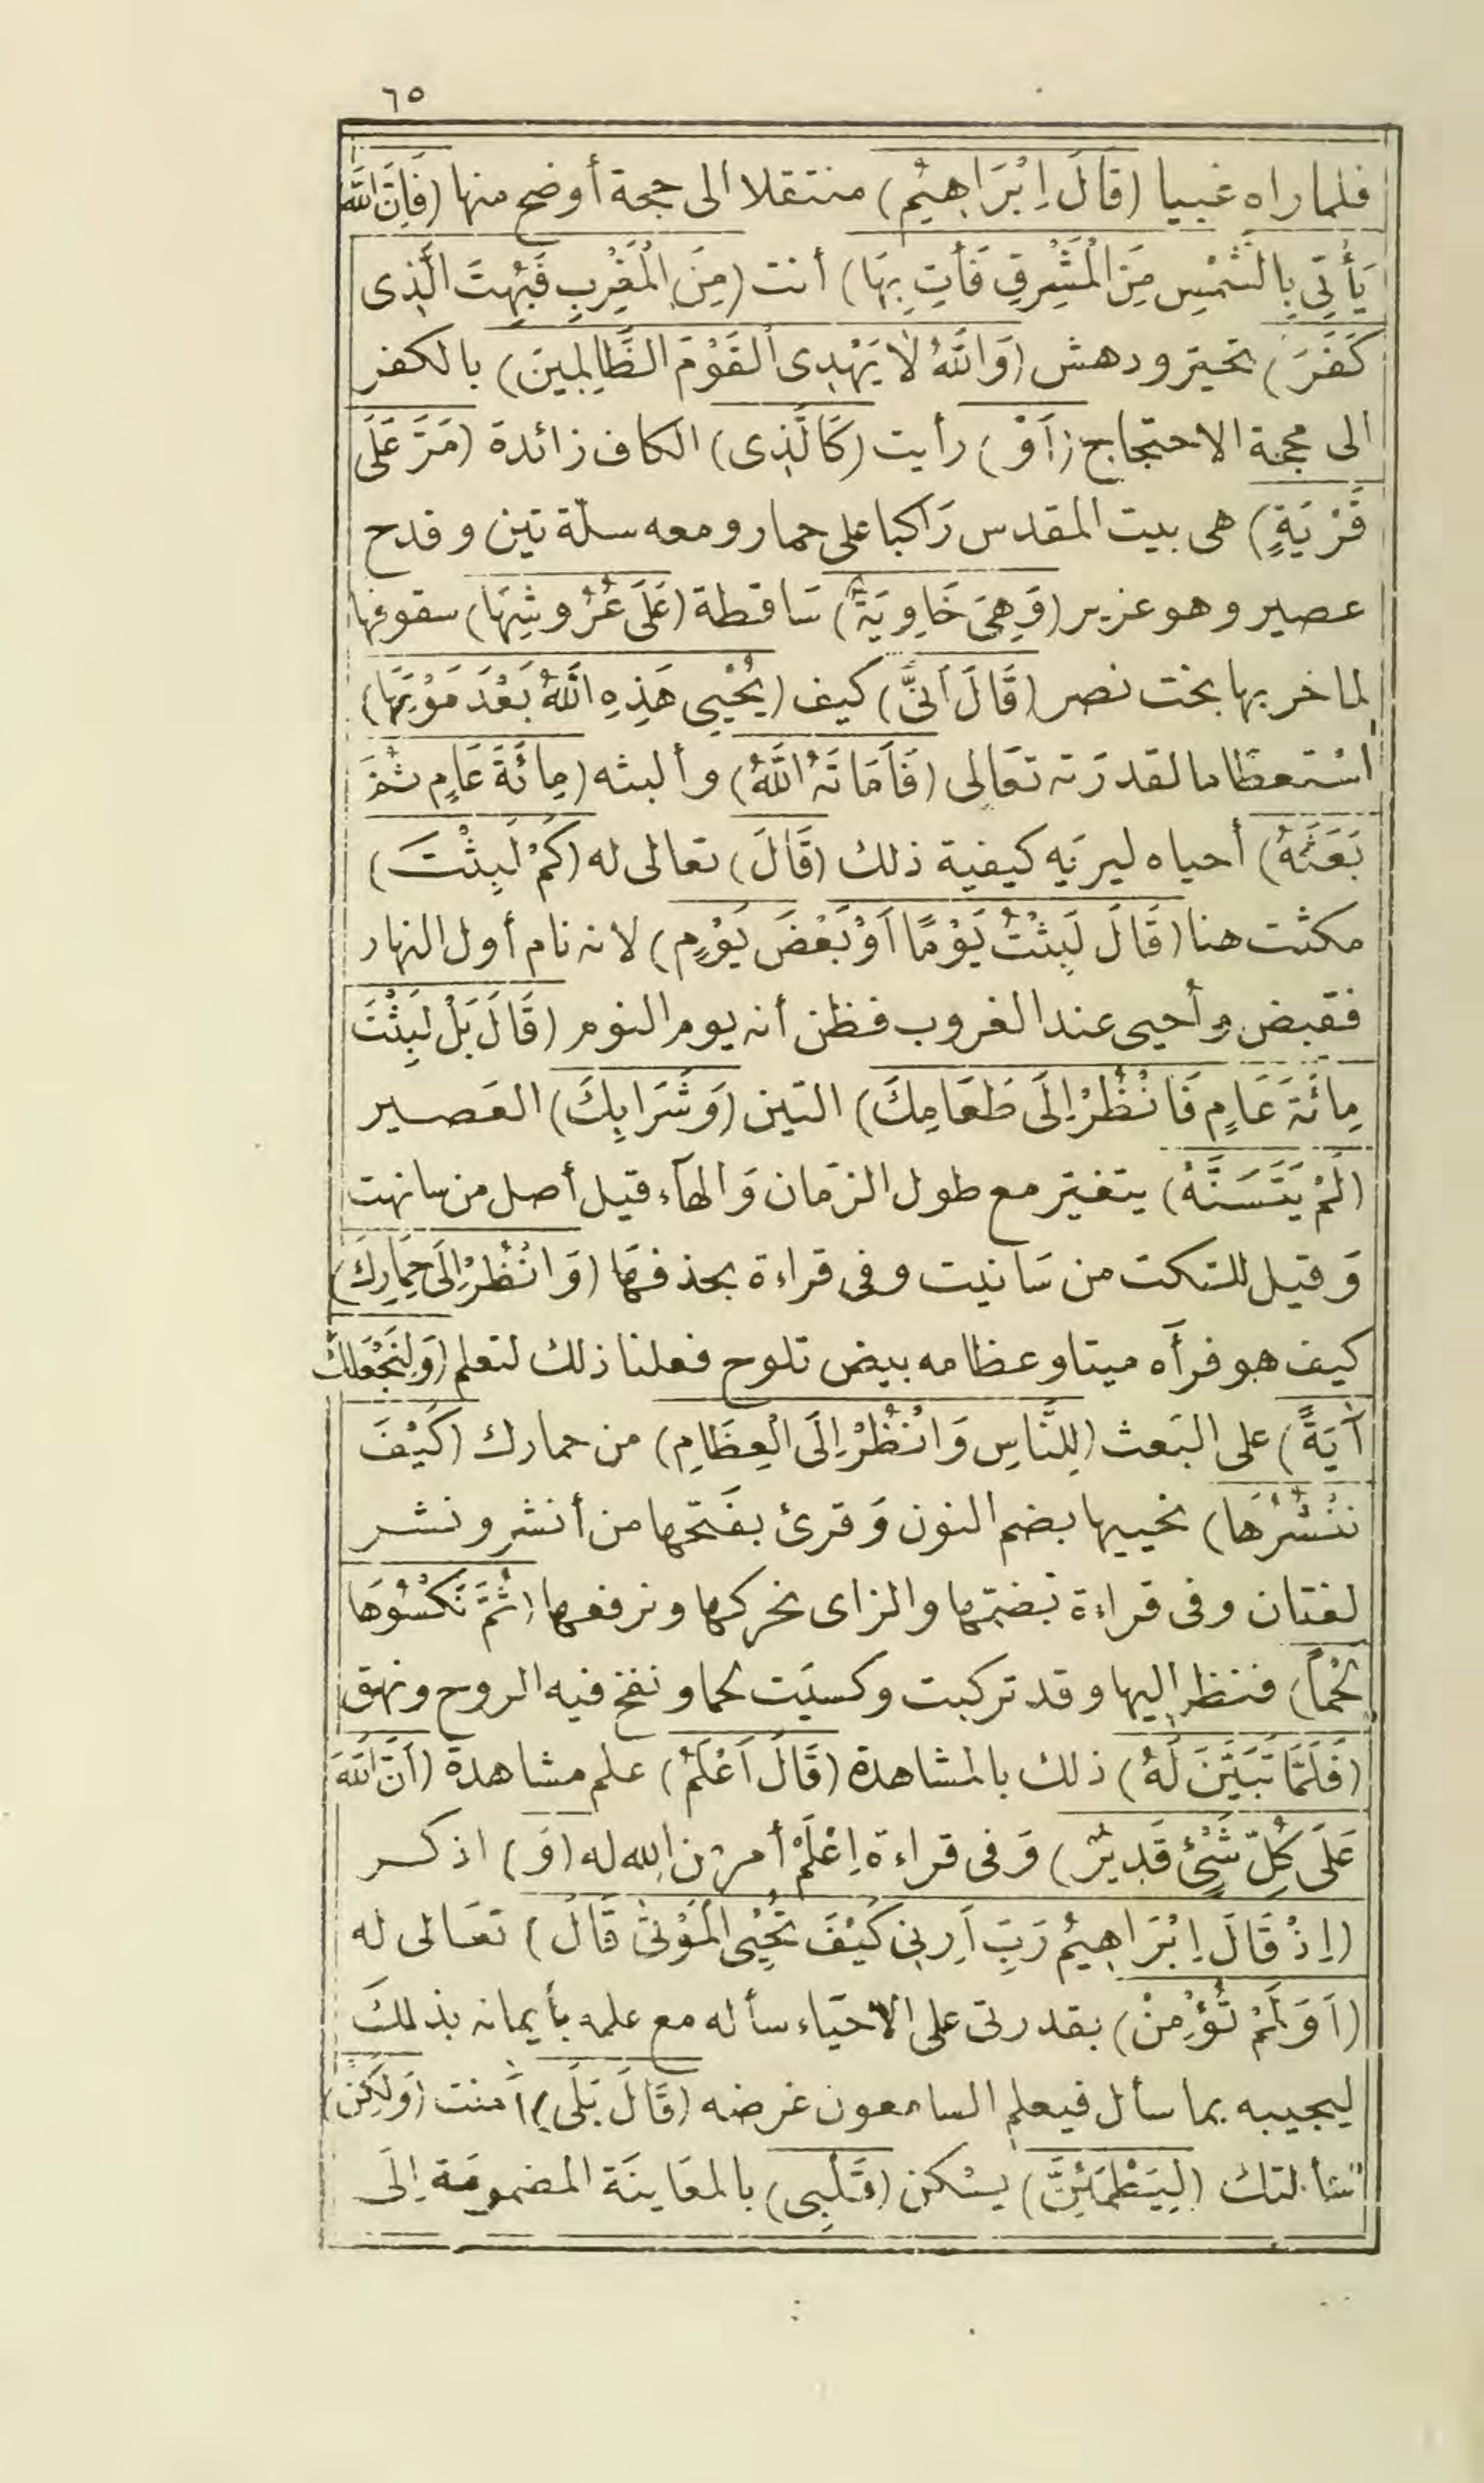 ٦٥
فلما راه غبيا (قَالَ اِبْرَاهِيمُ) منتقلا الى حجة أوضح منها (فَاِنَّ اللّٰهَ
يَأْتِي بِالشَّمْسِ مِنَ الْمَشْرِقِ فَأْتِ بِهَا) أنت (مِنَ الْمَغْرِبِ فَبُهِتَ الَّذِى
كَفَرَ) تحيّر ودهش (وَاللّٰهُ لَا يَهْدِى الْقَوْمَ الظَّالِمِينَ) بالكفر
الى محجة الاحتجاج (اَوْ) رأيت (كَالَّذِى) الكاف زائدة (مَرَّ عَلَى
قَرْيَةٍ) هى بيت المقدس رَاكبا على حمار ومعه سلّة تين وقدح
عصير وهو عزير (وَهِىَ خَاوِيَةٌ) سَاقطة (عَلَى عُرُوشِهَا) سقوفها
لما خربها بخت نصر (قَالَ اَنَّى) كيف (يُحْيِى هَذِهِ اللّٰهُ بَعْدَ مَوْتِهَا)
اسْتعظَاما لقدرَته تعَالى (فَاَمَاتَهُ اللّٰهُ) وألبثه (مِائَةَ عَامٍ ثُمَّ
بَعَثَهُ) أحياه ليريَه كيفية ذلك (قَالَ) تعالى له (كَمْ لَبِثْتَ)
مكثت هنا (قَالَ لَبِثْتُ يَوْمًا اَوْ بَعْضَ يَوْمٍ) لانه نام أول النهار
فقبض وأحيى عند الغروب فظن أنه يوم النوم (قَالَ بَلْ لَبِثْتَ
مِائَةَ عَامٍ فَانْظُرْ اِلَى طَعَامِكَ) التين (وَشَرَابِكَ) العَصير
(لَمْ يَتَسَنَّهْ) يتغيّر مع طول الزمَان وَالهآء قيل أصل من سانهت
وَقيل للسّكت من سَانيت وفى قراءة بحذفهَا (وَانْظُرْ اِلَى حِمَارِكَ)
كيف هو فرأَه ميتا وعظامه بيض تلوح فعلنا ذلك لتعلم (وَلِنَجْعَلَكَ
آيَةً) على البَعث (لِلنَّاسِ وَانْظُرْ اِلَى الْعِظَامِ) من حمارك (كَيْفَ
نُنْشُرُهَا) نحييها بضم النون وَقرئ بفَتحها من أنشر ونشر
لغتان وفى قراءة بَضمّها والزاى نحركها ونرفعها (ثُمَّ نَكْسُوهَا
لَحْمًا) فنظر اليها وقد تركبت وكسيَت لحما ونفخ فيه الروح ونهق
(فَلَمَّا تَبَيَّنَ لَهُ) ذلك بالمشاهدة (قَالَ اَعْلَمُ) علم مشاهدة (اَنَّ اللّٰهَ
عَلَى كُلِّ شَيْءٍ قَدِيرٌ) وَفى قراءة اِعْلَمْ أمر من الله له (وَ) اذكر
(اِذْ قَالَ اِبْرَاهِيمُ رَبِّ اَرِنِى كَيْفَ تُحْيِى الْمَوْتٰى قَالَ) تعَالى له
(اَوَلَمْ تُؤْمِنْ) بقدرتى على الاحيَاء سأله مع علمه بأيمانه بذلكَ
ليجيبه بما سأل فيعلم السامعون غرضه (قَالَ بَلَى) اَمنت (وَلَكِنْ)
سَأَلتك (لِيَطْمَئِنَّ) يسْكن (قَلْبِى) بالمعَاينَة المضمومَة اِلَى